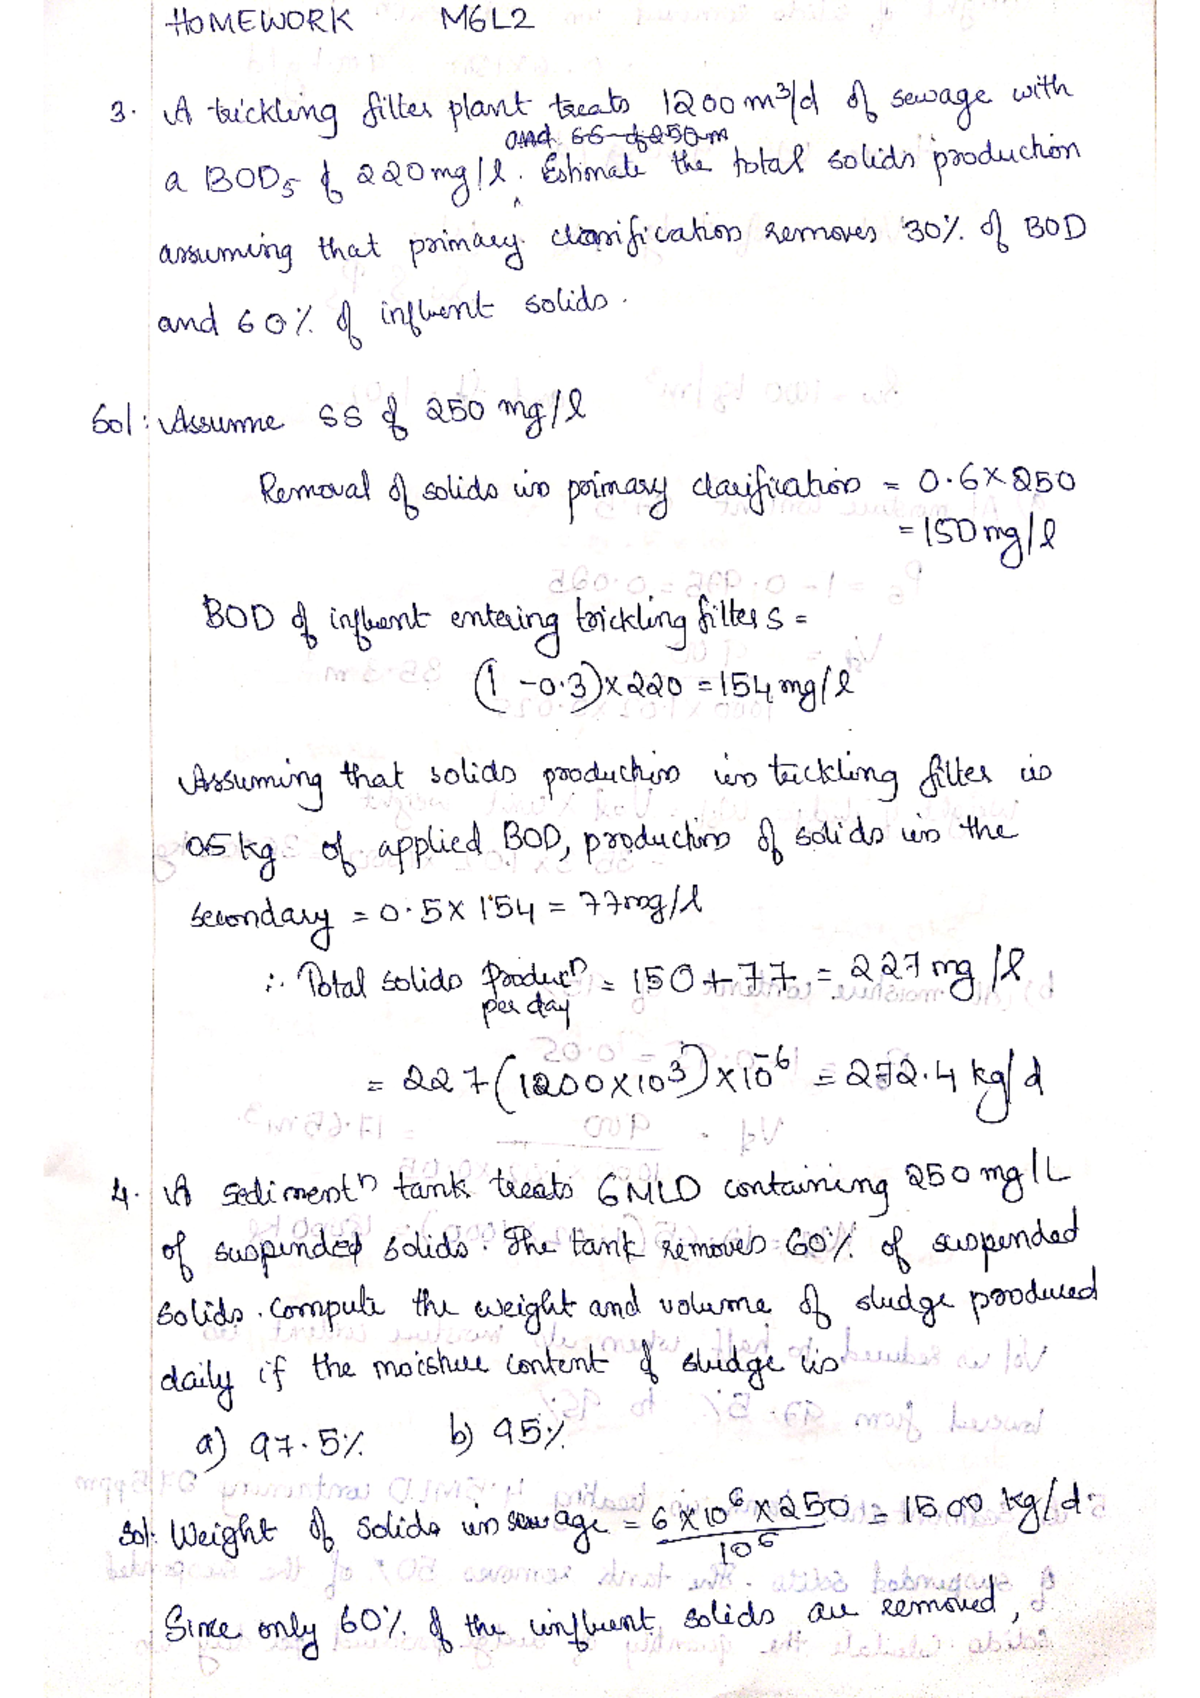 HOMEWORK M6L2
3. A trickling filter plant treats 1200 m³/d of sewage with
and SS of 250 m
a BOD₅ of 220 mg/l. Estimate the total solids production
assuming that primary clarification removes 30% of BOD
and 60% of influent solids.
Sol: Assume SS of 250 mg/l
Removal of solids in primary clarification = 0.6 × 250
= 150 mg/l
BOD of influent entering trickling filter s =
(1 - 0.3) × 220 = 154 mg/l
Assuming that solids production in trickling filter is
0.5 kg of applied BOD, production of solids in the
secondary = 0.5 × 154 = 77 mg/l
∴ Total solids producⁿ = 150 + 77 = 227 mg/l
per day
= 227 (1200 × 10³) × 10⁻⁶ = 272.4 kg/d
4. A sedimentⁿ tank treats 6 MLD containing 250 mg/L
of suspended solids. The tank removes 60% of suspended
solids. Compute the weight and volume of sludge produced
daily if the moisture content of sludge is
a) 97.5% b) 95%
Sol: Weight of solids in sewage = 6 × 10⁶ × 250 = 1500 kg/d.
10⁶
Since only 60% of the influent solids are removed,